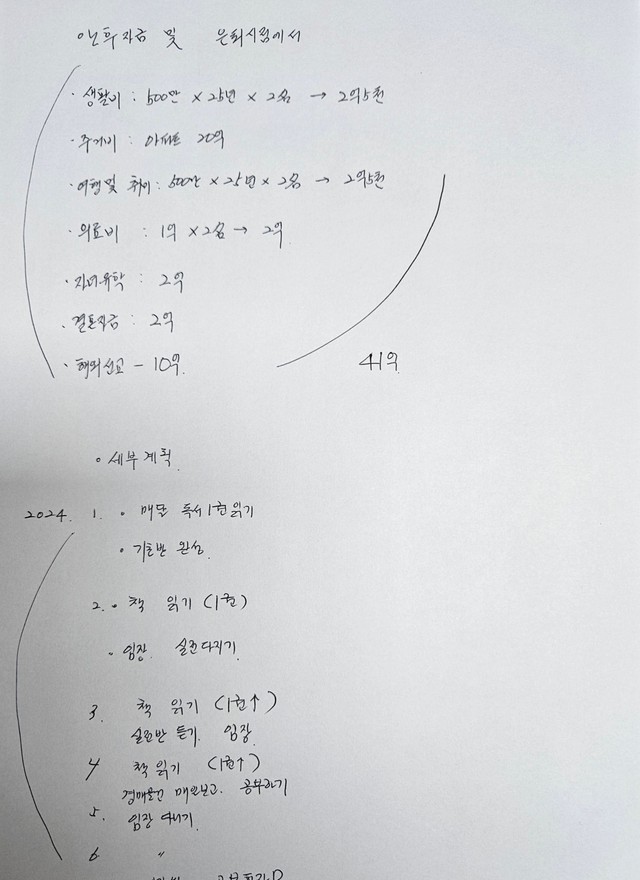 은퇴시점에서
· 생활비 : 500만 × 25년 × 2명 → 2억5천
· 주거비 : 아파트 20억
· 여행 및 취미 : 500만 × 25년 × 2명 → 2억5천
· 의료비 : 1억 × 2명 → 2억
· 자녀유학 : 2억
· 결혼자금 : 2억
· 해외선교 - 10억
41억
◦ 세부계획
2024. 1. ◦ 매달 독서 1권 읽기
◦ 기초반 완성
2. ◦ 책 읽기 (1권)
◦ 임장. 실전다지기
3. 책 읽기 (1권↑)
듣기. 임장
4 책 읽기 (1권↑)
경매물건 매일보고. 공부하기
5. 임장
6. 〃